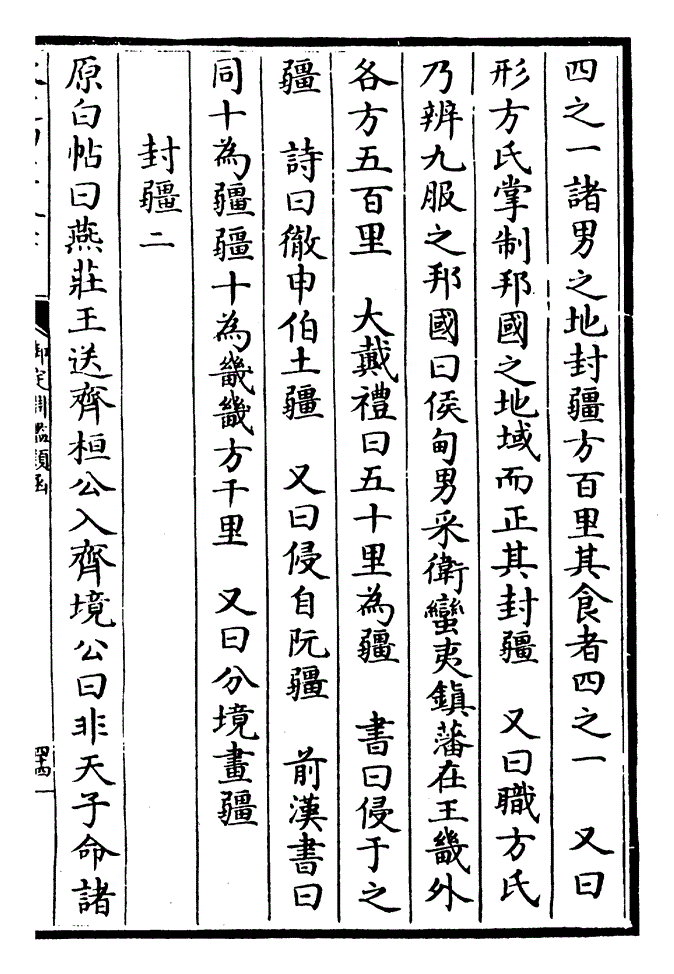 四之一諸男之地封疆方百里其食者四之一　又曰
形方氏掌制邦國之地域而正其封疆　又曰職方氏
乃辨九服之邦國曰侯甸男采衛蠻夷鎮藩在王畿外
各方五百里　大戴禮曰五十里為疆　書曰侵于之
疆　詩曰徹申伯土疆　又曰侵自阮疆　前漢書曰
同十為疆疆十為畿畿方千里　又曰分境畫疆
封疆二
原白帖曰燕莊王送齊桓公入齊境公曰非天子命諸
御定淵鑑類函